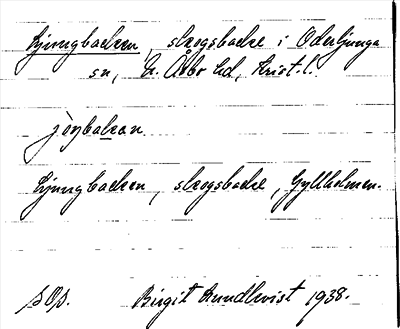 Ljungbacken, skogsbacke i Oderljunga
sn, N. Åsbo hd, Krist. l.
jöŋbakan
Ljungbacken, skogsbacke, Gyllholmen.
Birgit Rundkvist 1938.